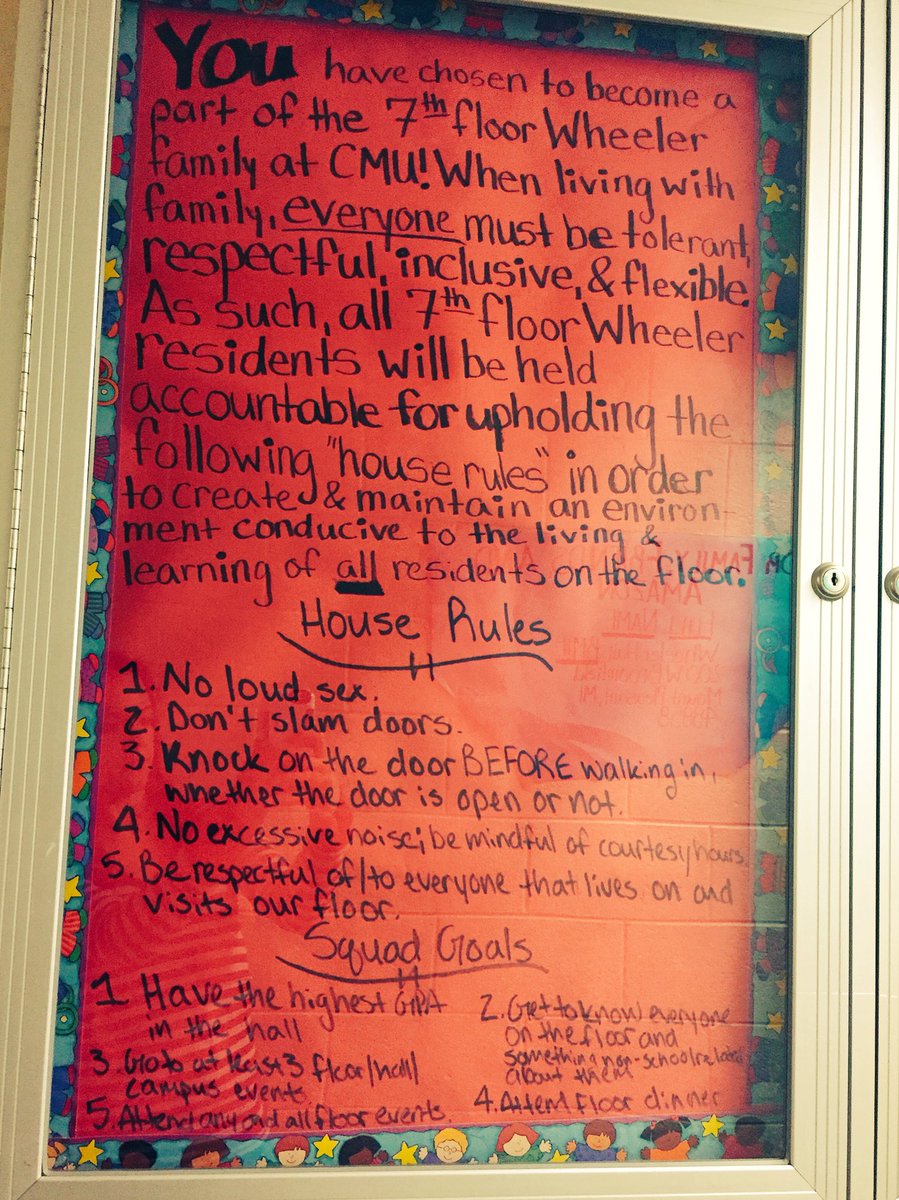 You have chosen to become a
part of the 7th floor Wheeler
family at CMU! When living with
family, everyone must be tolerant,
respectful, inclusive, & flexible.
As such, all 7th floor Wheeler
residents will be held
accountable for upholding the
following "house rules" in order
to create & maintain an environ-
ment conducive to the living &
learning of all residents on the floor.
House Rules
1. No loud sex.
2. Don't slam doors.
3. Knock on the door BEFORE walking in,
whether the door is open or not.
4. No excessive noise; be mindful of courtesy hours.
5. Be respectful of/to everyone that lives on and
visits our floor.
Squad Goals
1 Have the highest GPA
in the hall
2. Get to know everyone
on the floor and
something non-school related
about them
3. Go to at least 3 floor/hall/
campus events.
4. Attem floor dinner
5. Attend any and all floor events.